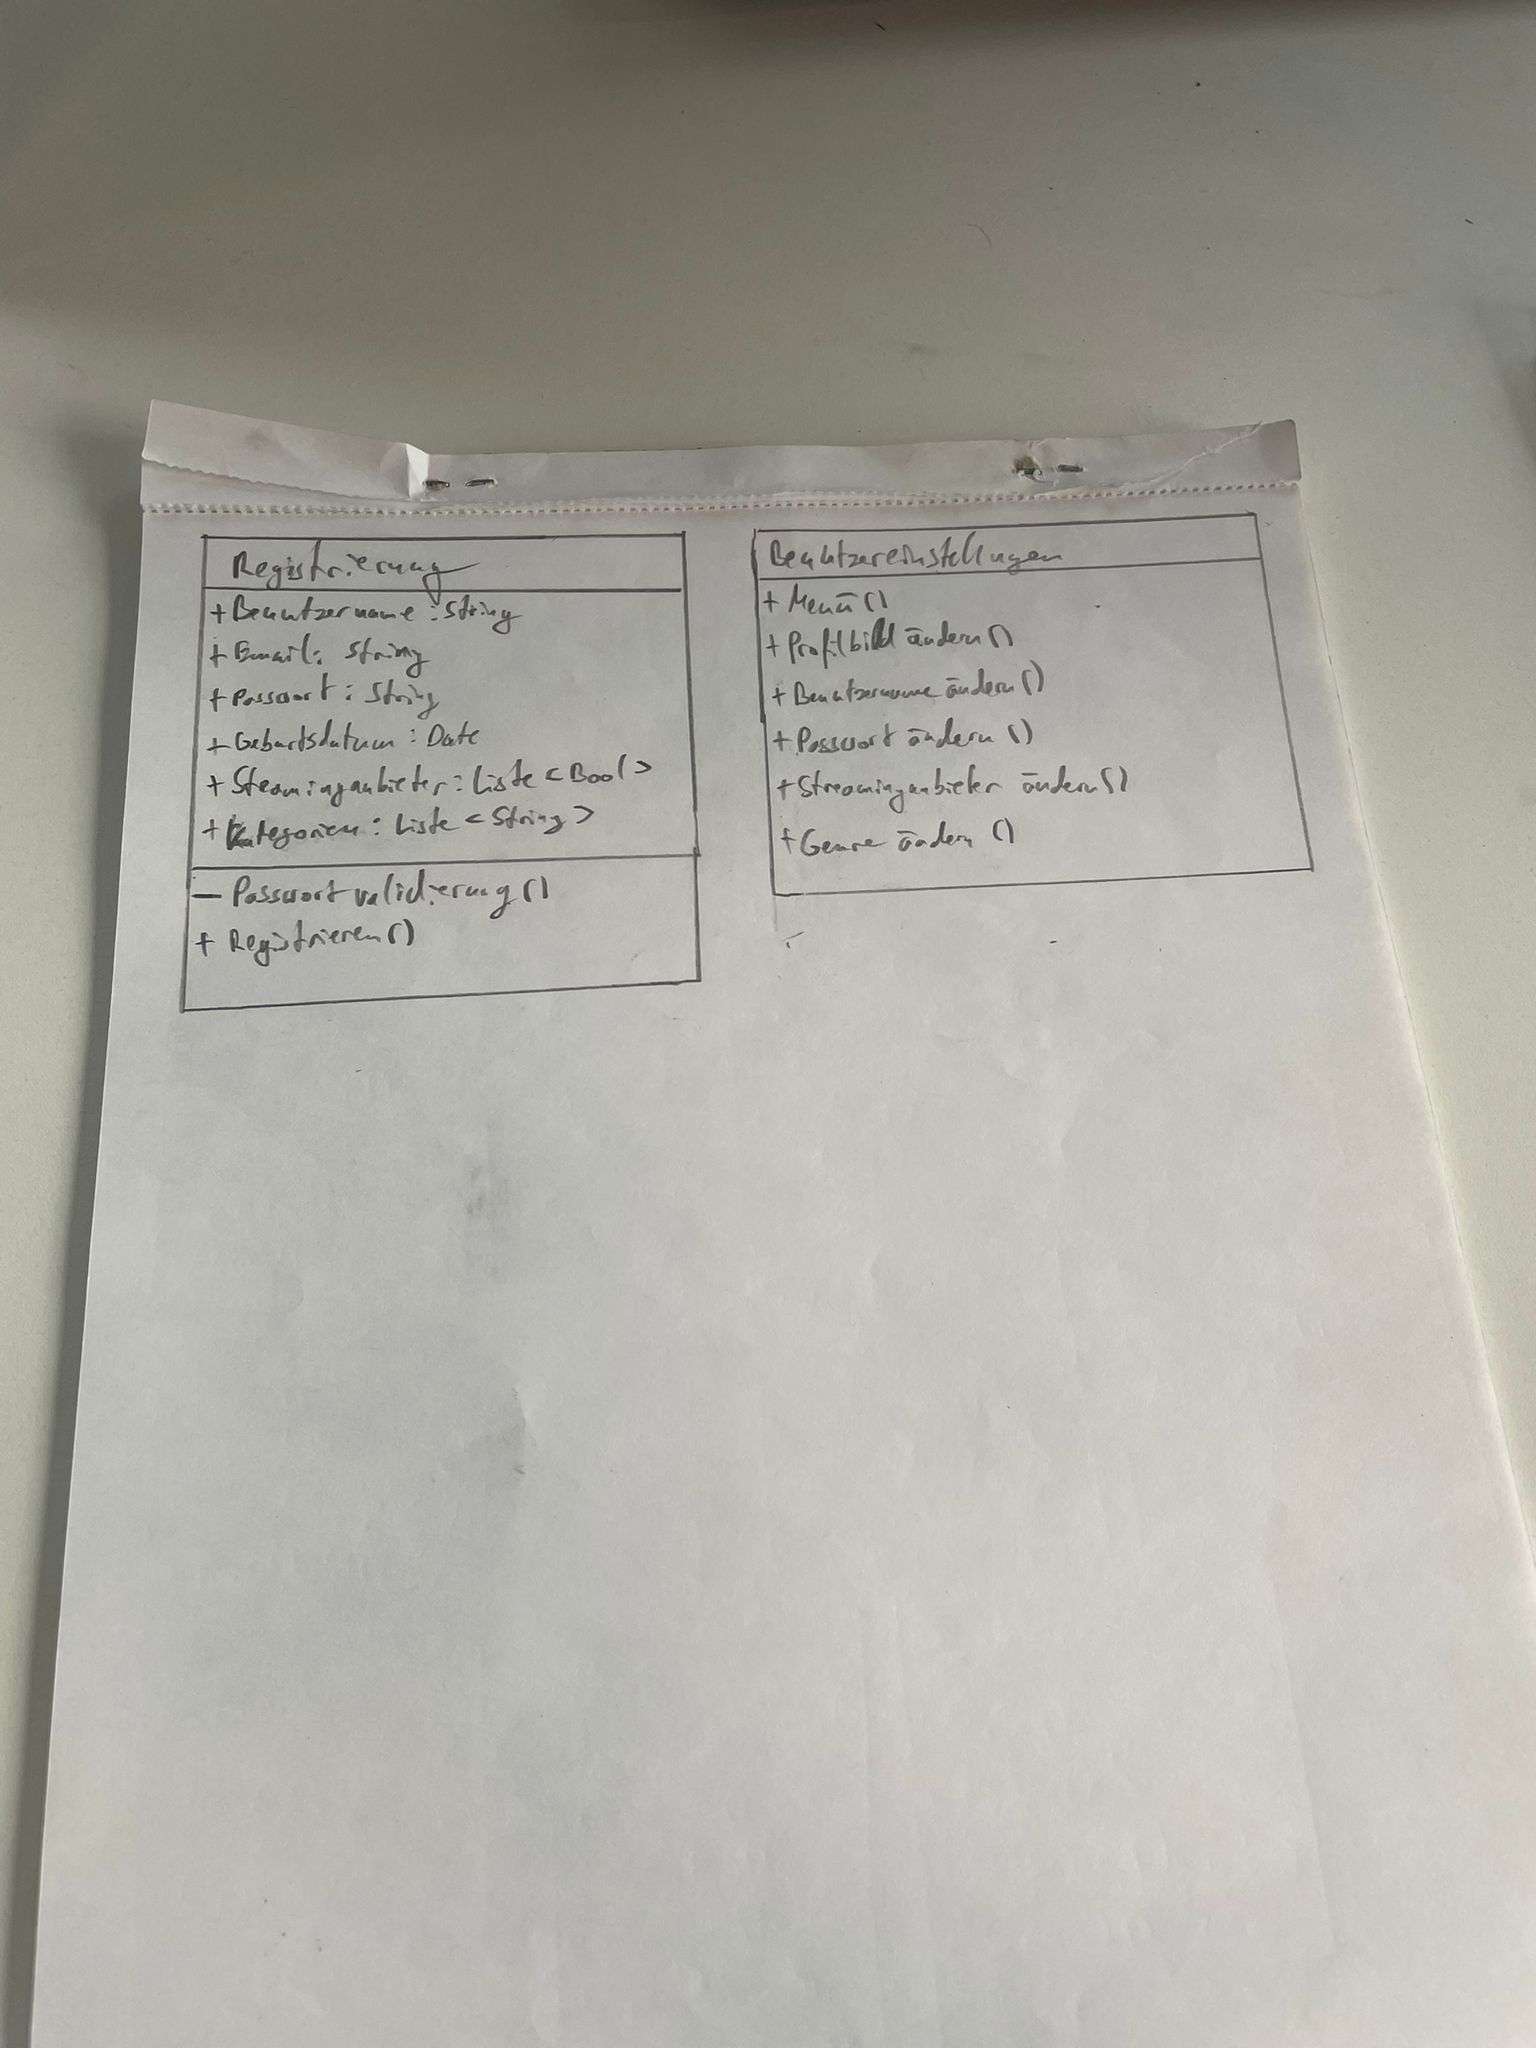 Registrierung
+ Benutzername : String
+ Email : String
+ Passwort : String
+ Geburtsdatum : Date
+ Streaminganbieter : Liste <Bool>
+ Kategorien : Liste <String>
- Passwort validierung()
+ Registrieren()
Benutzereinstellungen
+ Menü()
+ Profilbild ändern()
+ Benutzername ändern()
+ Passwort ändern()
+ Streaminganbieter ändern()
+ Genre ändern()